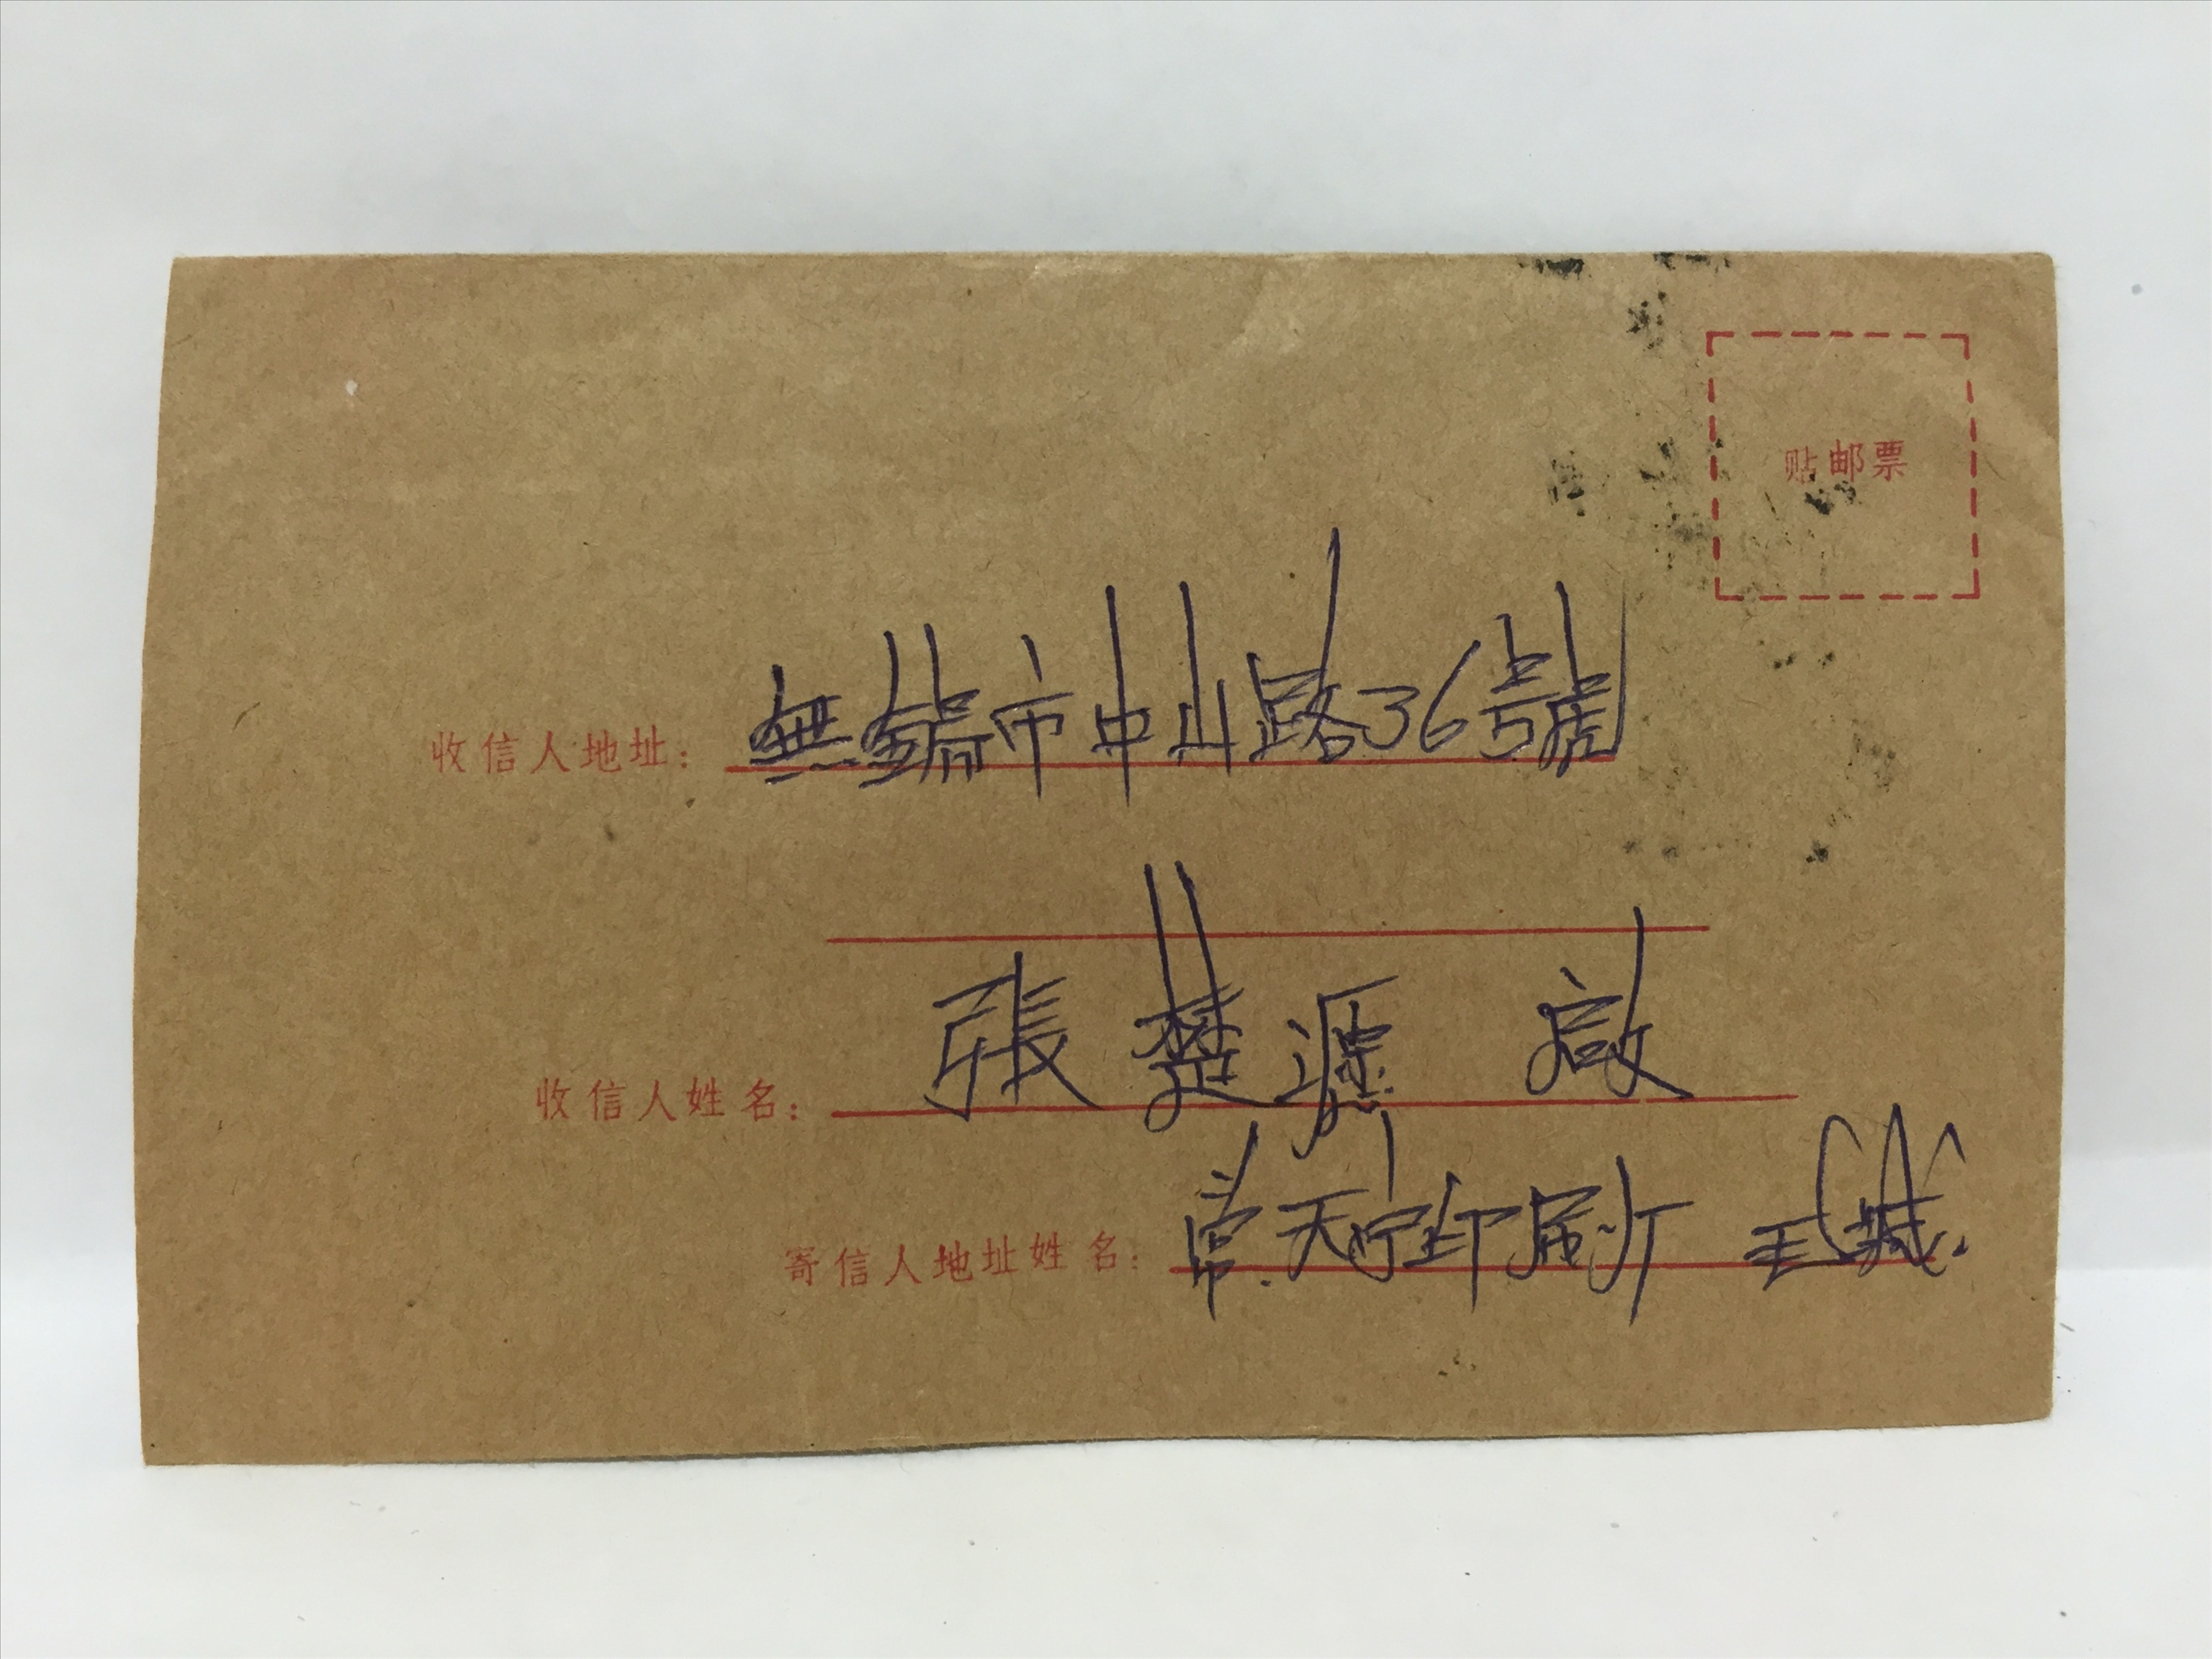 贴邮票
收信人地址：無錫市中山路36號
收信人姓名：張楚源 啟
寄信人地址姓名：常.天宁印刷厂 王